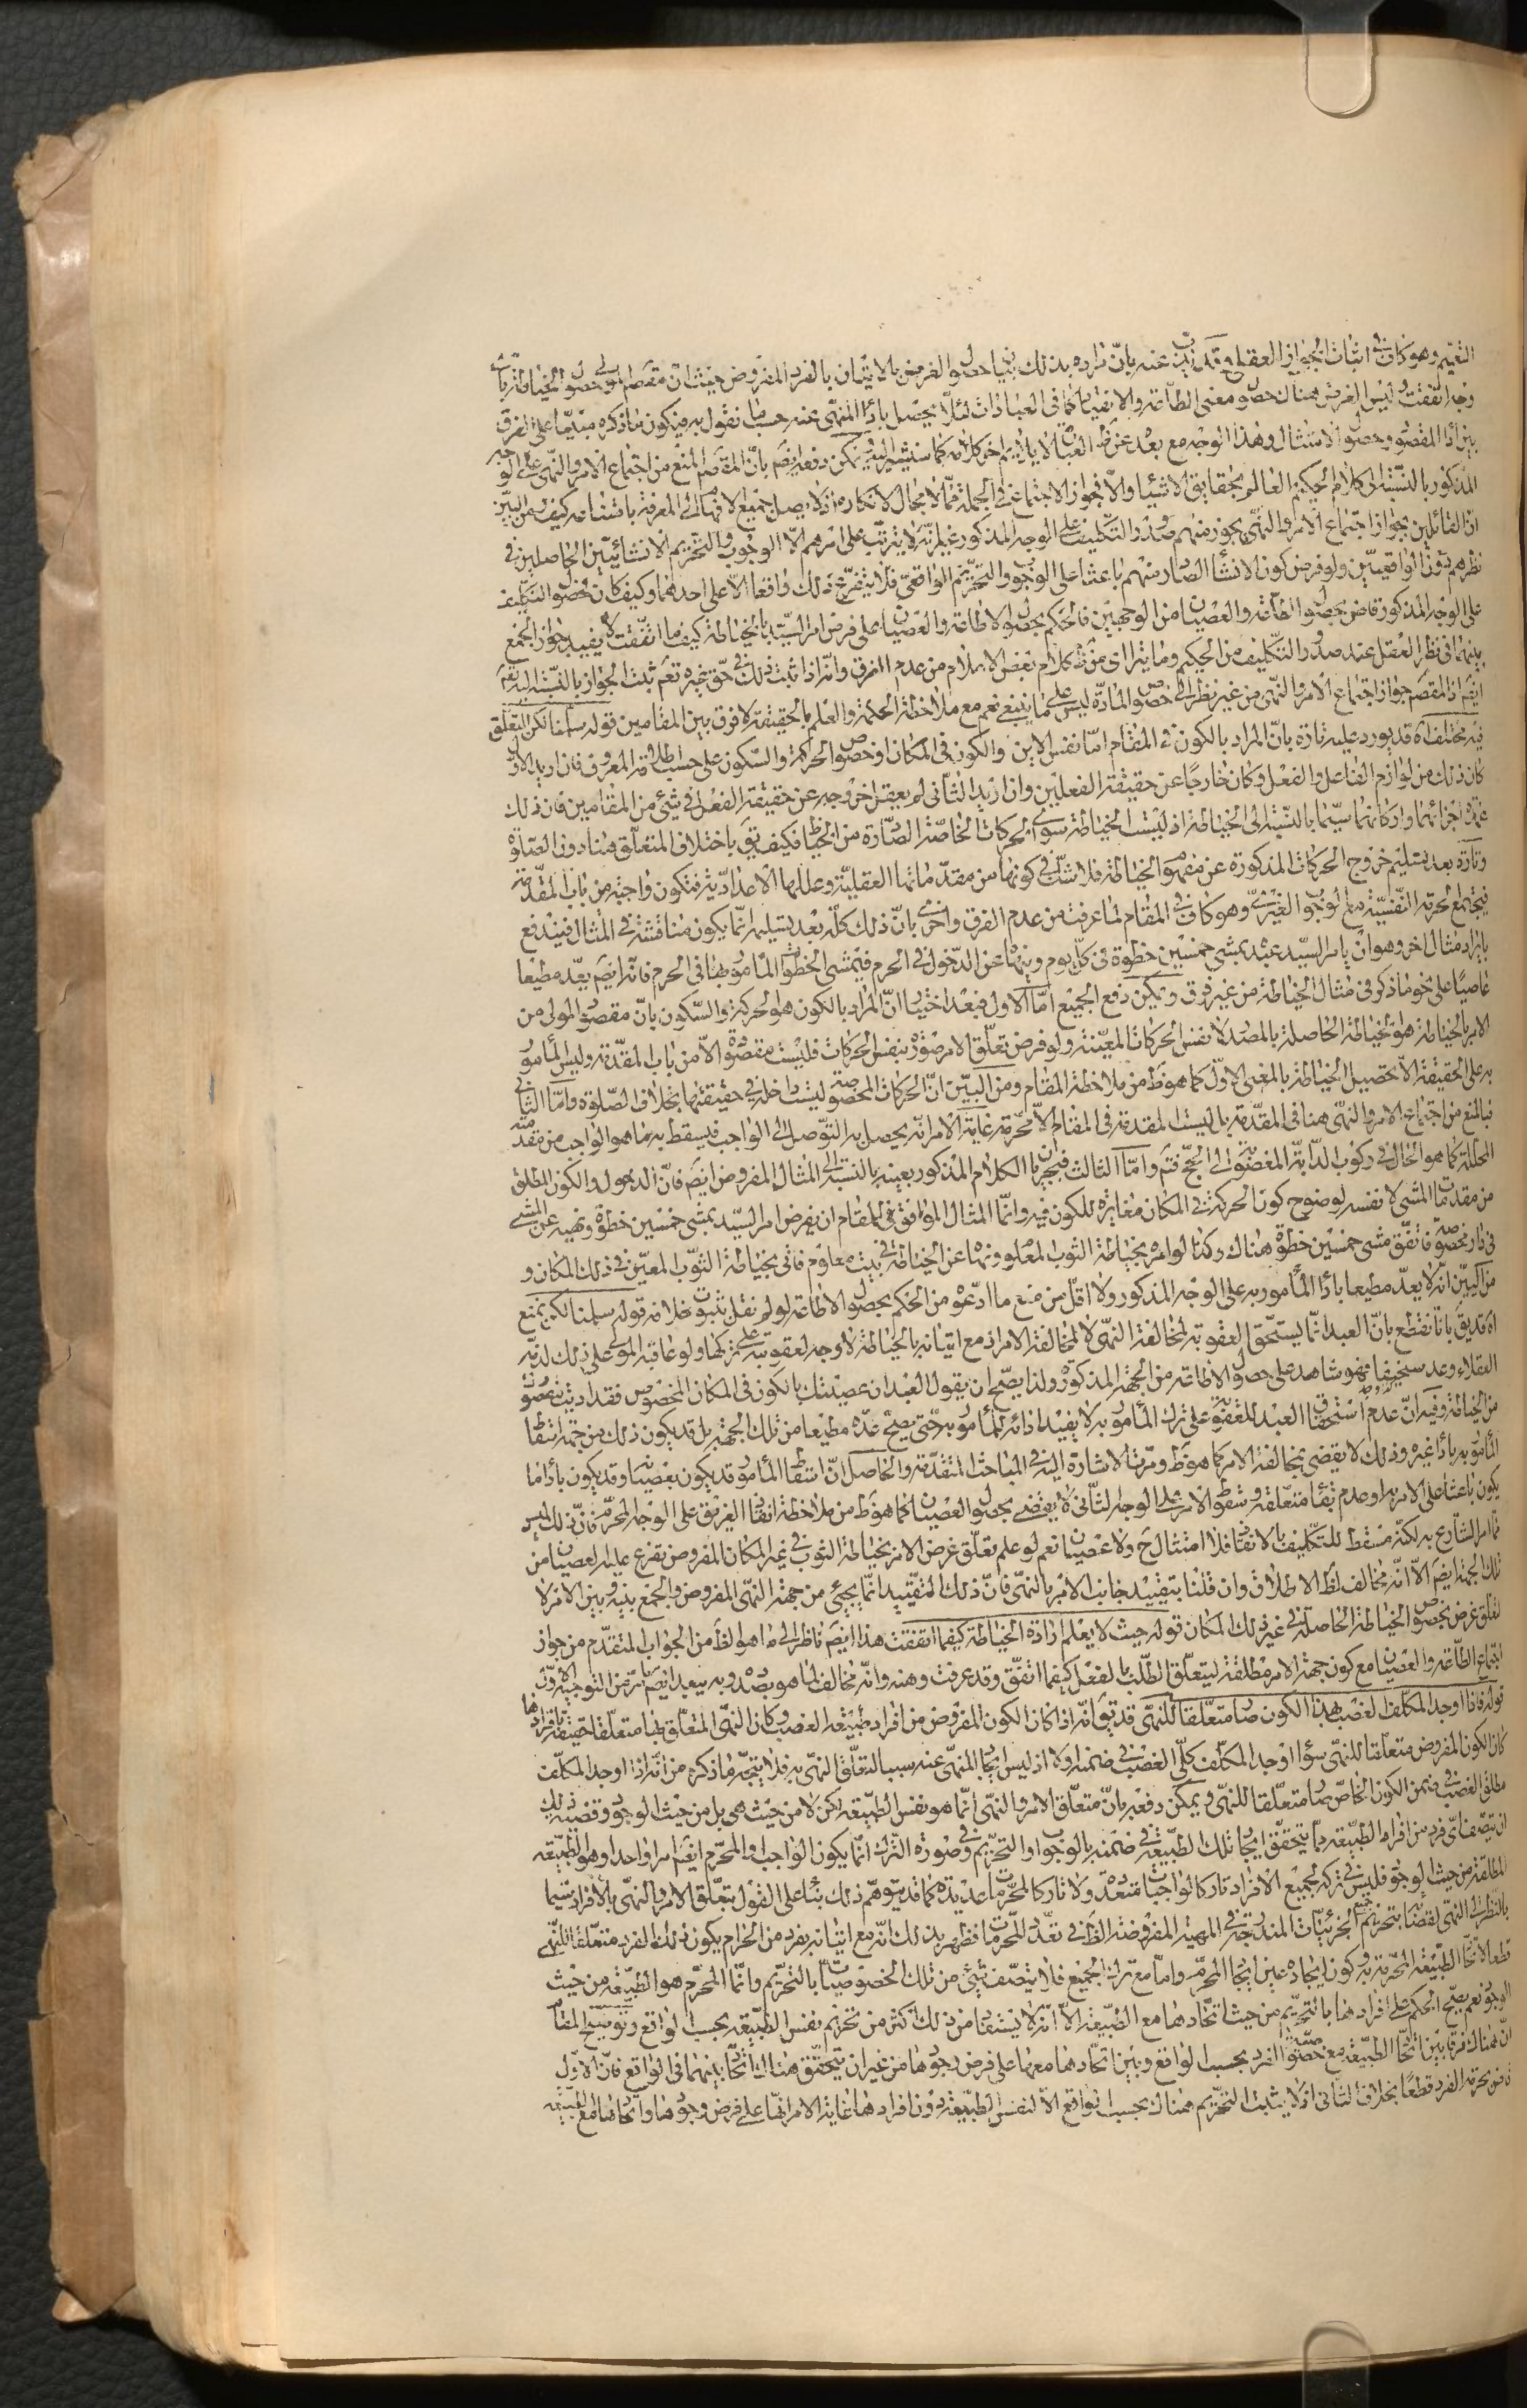 التعميم وهو كاف في اثبات الجواز العقلي وقد يذب عنه بان مراده بذلك بيان حصول الغرض بالاتيان بالفرد المفروض حيث ان مقصود المولى حصول الخياطة باي
وجه اتفقت وليس الغرض هناك حصول معنى الطاعة والانقياد كما في العبادات لئلا يحصل باداء المنهي عنه حسب ما نقول به فيكون ما ذكره مبنيا على الفرق
بين اداء المقصود وحصول الامتثال وهذا الوجه مع بعده عن ظ العبارة لا يلايم اخر كلامه كما سنشير اليه ويمكن دفعه ايضا بان المقصود المنع من اجتماع الامر والنهي على الوجه
المذكور بالنسبة الى كلام الحكيم العالم بحقايق الاشياء والا فجواز الاجتماع في الجملة مما لا مجال لانكاره اذ لا يصل جميع الافهام الى المعرفة بامتناعه كيف ومن البين
ان القائلين بجواز اجتماع الامر والنهي يجوز منهم صدور التكليف على الوجه المذكور غير انه لا يترتب على امرهم الا الوجوب والتحريم الانشائيين الحاصلين في
نظرهم دون الواقعيين ولو فرض كون الانشاء الصادر منهم باعثا على الوجوب والتحريم الواقعي فلا يتفرع ذلك واقعا الا على احدهما وكيف كان فحصول التكليف
على الوجه المذكور قاض بحصول الطاعة والعصيان من الوجهين فالحكم بحصول الاطاعة والعصيان على فرض امر السيد بالخياطة كيف ما اتفقت لا يفيد جواز الجمع
بينهما في نظر العقل عند صدور التكليف من الحكيم وما يترااى من كلام بعض الاعلام من عدم الفرق وانه اذا ثبت ذلك في حق غيره تعم ثبت الجواز بالنسبة اليه تعم
ايضا اذ المقصود جواز اجتماع الامر والنهي من غير نظر الى خصوص المادة ليس على ما ينبغي نعم مع ملاحظة الحكمة والعلم بالحقيقة لا فرق بين المقامين قوله سلمنا لكن المتعلق
فيه مختلف اه قد يورد عليه تارة بان المراد بالكون في المقام اما نفس الاين والكون في المكان او خصوص الحركة والسكون على حسب اطلاقه المعروف فان اريد الاول
كان ذلك من لوازم الفاعل والفعل وكان خارجا عن حقيقة الفعلين وان اريد الثاني لم يعقل خروجه عن حقيقة الفعل في شيء من المقامين فان ذلك
عمدة اجزائهما واركانهما سيما بالنسبة الى الخياطة اذ ليست الخياطة سوى الحركات الخاصة الصادرة من الخياط فكيف يق باختلاف المتعلق هنا دون الصلوة
وتارة بعد تسليم خروج الحركات المذكورة عن مفهوم الخياطة فلا شك في كونها من مقدماتها العقلية وعللها الاعدادية فتكون واجبة من باب المقدمة
فيجتمع الحرمة النفسية مع الوجوب الغيري وهو كاف في المقام لما عرفت من عدم الفرق واخرى بان ذلك كله بعد تسليمه انما يكون مناقشة في المثال فيندفع
بايراد مثال اخر وهو ان يامر السيد عبده بمشي خمسين خطوة في كل يوم وينهاه عن الدخول في الحرم فيمشي الخطوات المامور بها في الحرم فانه ايضا يعد مطيعا
عاصيا على نحو ما ذكر في مثال الخياطة من غير فرق ويمكن دفع الجميع اما الاول فبعد اختيار ان المراد بالكون هو الحركة والسكون بان مقصود المولى من
الامر بالخياطة هو الخياطة الحاصلة بالمصدر لا نفس الحركات المعينة ولو فرض تعلق الامر صورة بنفس الحركات فليست مقصودة الا من باب المقدمة وليس المامور
به على الحقيقة الا تحصيل الخياطة بالمعنى الاول كما هو ظ من ملاحظة المقام ومن البين ان الحركات المخصوصة ليست داخلة في حقيقتها بخلاف الصلوة واما الثاني
فبالمنع من اجتماع الامر والنهي هنا في المقدمة بل ليست المقدمة في المقام الا محرمة غاية الامر انه يحصل به التوصل الى الواجب فيسقط به ما هو الواجب من مقدمته
المحللة كما هو الحال في ركوب الدابة المغصوبة الى الحج فتم واما الثالث فبجريان الكلام المذكور بعينه بالنسبة الى المثال المفروض ايضا فان الدخول والكون المطلق
من مقدمات المشي لا نفسه لوضوح كون الحركة في المكان مغايرة للكون فيه وانما المثال الموافق في المقام ان يفرض امر السيد بمشي خمسين خطوة ونهيه عن المشي
في دار مخصوصة فاتفق مشي خمسين خطوة هناك وكذا لو امره بخياطة الثوب المعلوم ونهاه عن الخياطة في بيت معلوم فاتى بخياطة الثوب المعين في ذلك المكان و
من البين انه لا يعد مطيعا باداء المأمور به على الوجه المذكور ولا اقل من منع ما ادعوه من الحكم بحصول الاطاعة لو لم نقل بثبوت خلافه قوله سلمنا لكن يمنع
اه قد يق بانا نقطع بان العبد انما يستحق العقوبة لمخالفة النهي لا لمخالفة الامر اذ مع اتيانه بالخياطة لا وجه لعقوبته على تركها ولو عاقبه المولى على ذلك لذمه
العقلاء وعد سخيفا فهو شاهد على حصول الاطاعة من الجهة المذكورة ولذا يصح ان يقول العبد ان عصيتك بالكون في المكان المخصوص فقد اديت مقصودك
من الخياطة وفيه ان عدم استحقاق العبد للعقوبة على ترك المأمور به لا يفيد ادائه للمأمور به حتى يصح عده مطيعا من تلك الجهة بل قد يكون ذلك من جهة اسقاط
المأمور به باداء غيره وذلك لا يقضى بمخالفة الامر كما هو ظ ومرت الاشارة اليه في المباحث المتقدمة والحاصل ان اسقاط المأمور قد يكون بعصيانه وقد يكون باداء ما
يكون باعثا على الامر به او عدم بقاء متعلقه وسقوط الامر على الوجه الثاني لا يقضي بحصول العصيان كما هو ظ من ملاحظة انقاذ الغريق على الوجه المحرم فان ذلك ليس
مما امر الشارع به لكنه مسقط للتكليف بالانقاذ فلا امتثال ح ولا عصيان نعم لو علم تعلق غرض الامر بخياطة الثوب في غير المكان المفروض تفرع عليه العصيان من
تلك الجهة ايضا الا انه مخالف لظ الاطلاق وان قلنا بتقييد جانب الامر بالنهي فان ذلك التقييد انما يجيئ من جهة النهي المفروض والجمع بينه وبين الامر لا
لتعلق غرض بخصوص الخياطة الحاصلة في غير ذلك المكان قوله حيث لا يعلم ارادة الخياطة كيفما اتفقت هذا ايضا ناظر الى ما هو الظ من الجواب المتقدم من جواز
اجتماع الطاعة والعصيان مع كون جهة الامر مطلقة ليتعلق الطلب بالفعل كيفما اتفق وقد عرفت وهنه وانه مخالف لما هو بصدده وبه يبعد ايضا ما مر من التوجيه الاول
قوله فاذا اوجد المكلف الغصب بهذا الكون صار متعلقا للنهي قد يق انه اذا كان الكون المفروض من افراد طبيعة الغصب وكان النهي المتعلق بها متعلقا حقيقة بافرادها
كان الكون المفروض متعلقا للنهي سواء اوجد المكلف كلي الغصب في ضمنه اولا اذ ليس ايجاد المنهي عنه سببا لتعلق النهي به فلا يتجه ما ذكره من انه اذا اوجد المكلف
مطلق الغصب في ضمن الكون الخاص صار متعلقا للنهي ويمكن دفعه بان متعلق الامر والنهي انما هو نفس الطبيعة لكن لا من حيث هي بل من حيث الوجود وقضية ذلك
ان يتصف اي فرد من افراد الطبيعة مما يتحقق ايجاد تلك الطبيعة في ضمنه بالوجوب او التحريم وفي صورة الترك انما يكون الواجب والمحرم ايضا امرا واحدا وهو الطبيعة
المطلقة من حيث الوجود فليس في تركه لجميع الافراد تاركا لواجبات متعددة ولا تاركا لمحرمات عديدة كما قد يتوهم ذلك بناء على القول بتعلق الامر والنهي بالافراد سيما
بالنظر الى النهي لقضائه بتحريم جميع الجزئيات المندرجة في المهية المفروضة الظ في تعدد المحرمات فظهر بذلك انه مع اتيانه بفرد من الحرام يكون ذلك الفرد متعلقا للنهي
قطعا لاتحاد الطبيعة المحرمة به وكون ايجاده عين ايجاد المحرم واما مع ترك الجميع فلا يتصف شيء من تلك الخصوصيات بالتحريم وانما المحرم هو الطبيعة من حيث
الوجود نعم يصح الحكم على افرادها بالتحريم من حيث اتحادها مع الطبيعة الا انه لا يستفاد من ذلك اكثر من تحريم نفس الطبيعة بحسب الواقع وتوضيح المقام
ان هناك فرقا بين اتحاد الطبيعة مع خصوصية الفرد بحسب الواقع وبين اتحادها معها على فرض وجودها من غير ان يتحقق هناك اتحاد بينهما في الواقع فان الاول
قاض بحرمة الفرد قطعا بخلاف الثاني اذ لا يثبت التحريم هناك بحسب الواقع الا لنفس الطبيعة دون افرادها غاية الامر انها على فرض وجودها واتحادها مع الطبيعة